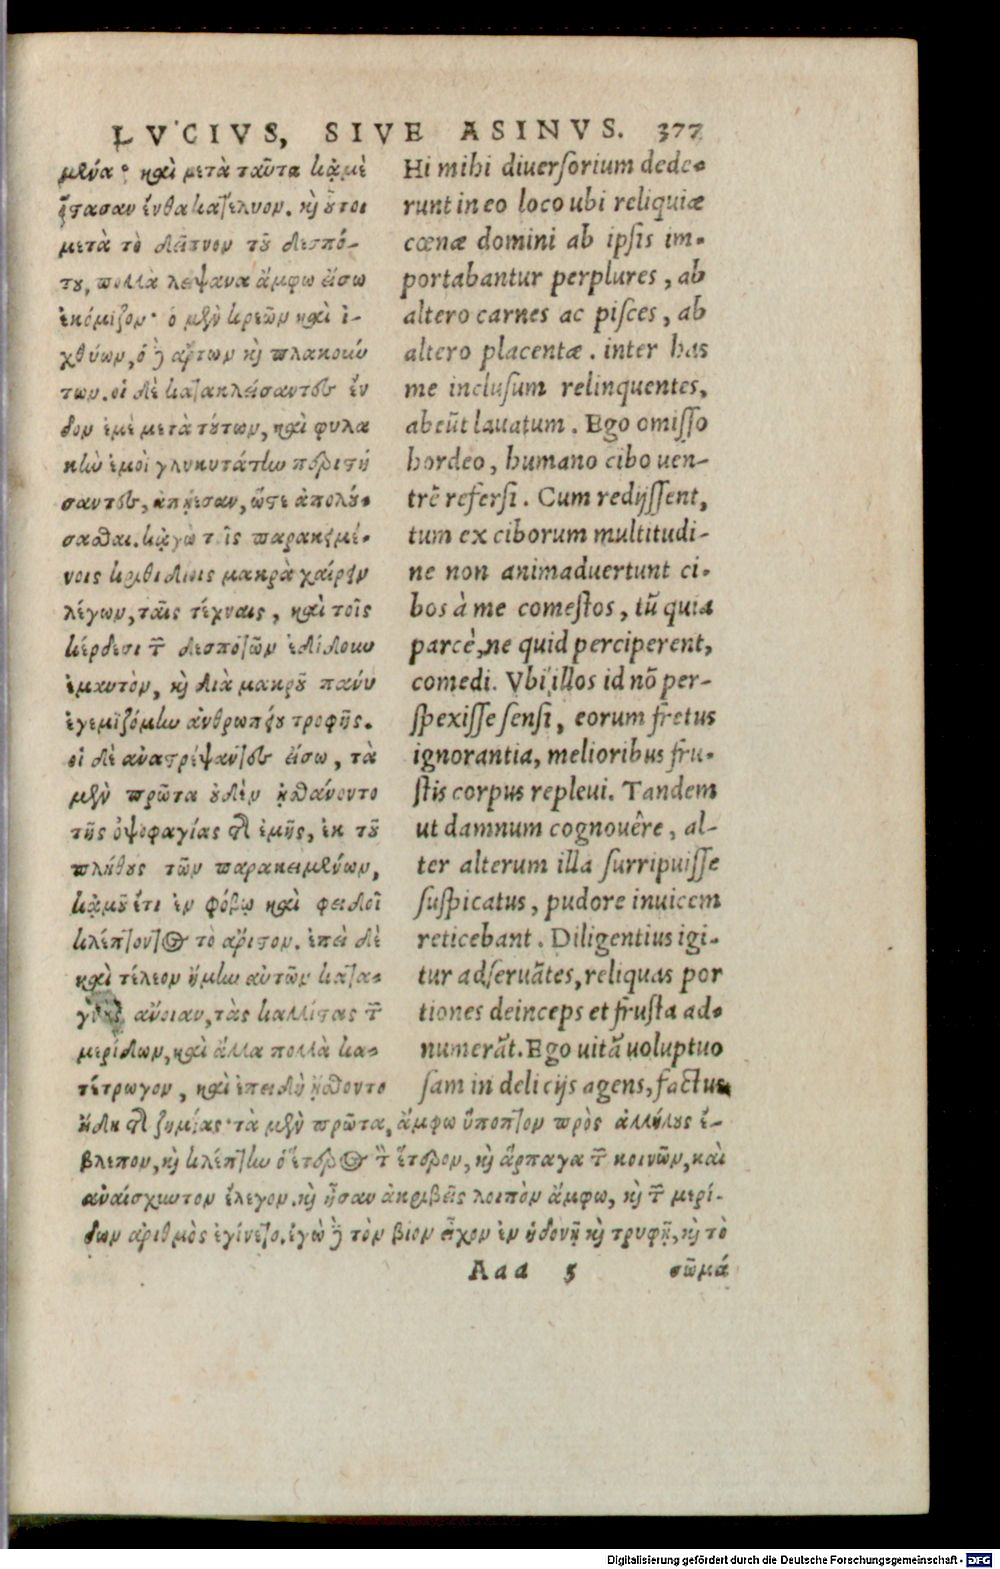 LVCIVS, SIVE ASINVS. 377
μενα· καὶ μετὰ ταῦτα κἀμὲ
ἔστασαν ἔνθα κατέλυον. καὶ οὗτοι
μετὰ τὸ δεῖπνον τοῦ δεσπό-
του, πολλὰ λείψανα ἄμφω εἴσω
ἐκόμιζον· ὁ μὲν κρεῶν καὶ ἰ-
χθύων, ὁ δὲ ἄρτων καὶ πλακούν
των. οἱ δὲ κατακλείσαντες ἔν
δον ἐμὲ μετὰ τούτων, καὶ φυλα
κὴν ἐμοὶ γλυκυτάτην περιστή
σαντες, ἀπῄεσαν, ὥστε ἀπολού-
σασθαι. κἀγὼ τοῖς παρακειμέ-
νοις κριθιδίοις μακρὰ χαίρειν
λέγων, ταῖς τέχναις, καὶ τοῖς
κέρδεσι τῶν δεσποτῶν ἐδίδουν
ἐμαυτὸν, καὶ διὰ μακροῦ πάνυ
ἐγεμιζόμην ἀνθρωπείου τροφῆς.
οἱ δὲ ἀναστρέψαντες εἴσω, τὰ
μὲν πρῶτα οὐδὲν ᾐσθάνοντο
τῆς ὀψοφαγίας τῆς ἐμῆς, ἐκ τοῦ
πλήθους τῶν παρακειμένων,
κἀμοῦ ἔτι ἐν φόβῳ καὶ φειδοῖ
κλέπτοντος τὸ ἄριστον. ἐπεὶ δὲ
καὶ τέλεον ἤμην αὐτῶν κατα-
γνοὺς ἄνοιαν, τὰς καλλίστας τῶν
μερίδων, καὶ ἄλλα πολλὰ κα-
τέτρωγον, καὶ ἐπειδὴ ᾔσθοντο
ἤδη τῆς ζημίας· τὰ μὲν πρῶτα, ἄμφω ὕποπτον πρὸς ἀλλήλους ἔ-
βλεπον, καὶ κλέπτην ὁ ἕτερος τὸν ἕτερον, καὶ ἅρπαγα τῶν κοινῶν, καὶ
ἀναίσχυντον ἔλεγον. καὶ ἦσαν ἀκριβεῖς λοιπὸν ἄμφω, καὶ τῶν μερί-
δων ἀριθμὸς ἐγίνετο. ἐγὼ δὲ τὸν βίον εἶχον ἐν ἡδονῇ καὶ τρυφῇ, καὶ τὸ
Hi mihi diuersorium dede-
runt in eo loco ubi reliquiæ
cœnæ domini ab ipsis im-
portabantur perplures, ab
altero carnes ac pisces, ab
altero placentæ. inter has
me inclusum relinquentes,
abeũt lauatum. Ego omisso
hordeo, humano cibo uen-
trẽ refersi. Cum redijssent,
tum ex ciborum multitudi-
ne non animaduertunt ci-
bos à me comestos, tũ quia
parcè, ne quid perciperent,
comedi. Vbi illos id nõ per-
spexisse sensi, eorum fretus
ignorantia, melioribus fru-
stis corpus repleui. Tandem
ut damnum cognouêre, al-
ter alterum illa surripuisse
suspicatus, pudore inuicem
reticebant. Diligentius igi-
tur adseruãtes, reliquas por
tiones deinceps et frusta ad-
numerãt. Ego uitã uoluptuo
sam in delicijs agens, factus
Aaa 5 σῶμά
Digitalisierung gefördert durch die Deutsche Forschungsgemeinschaft - DFG